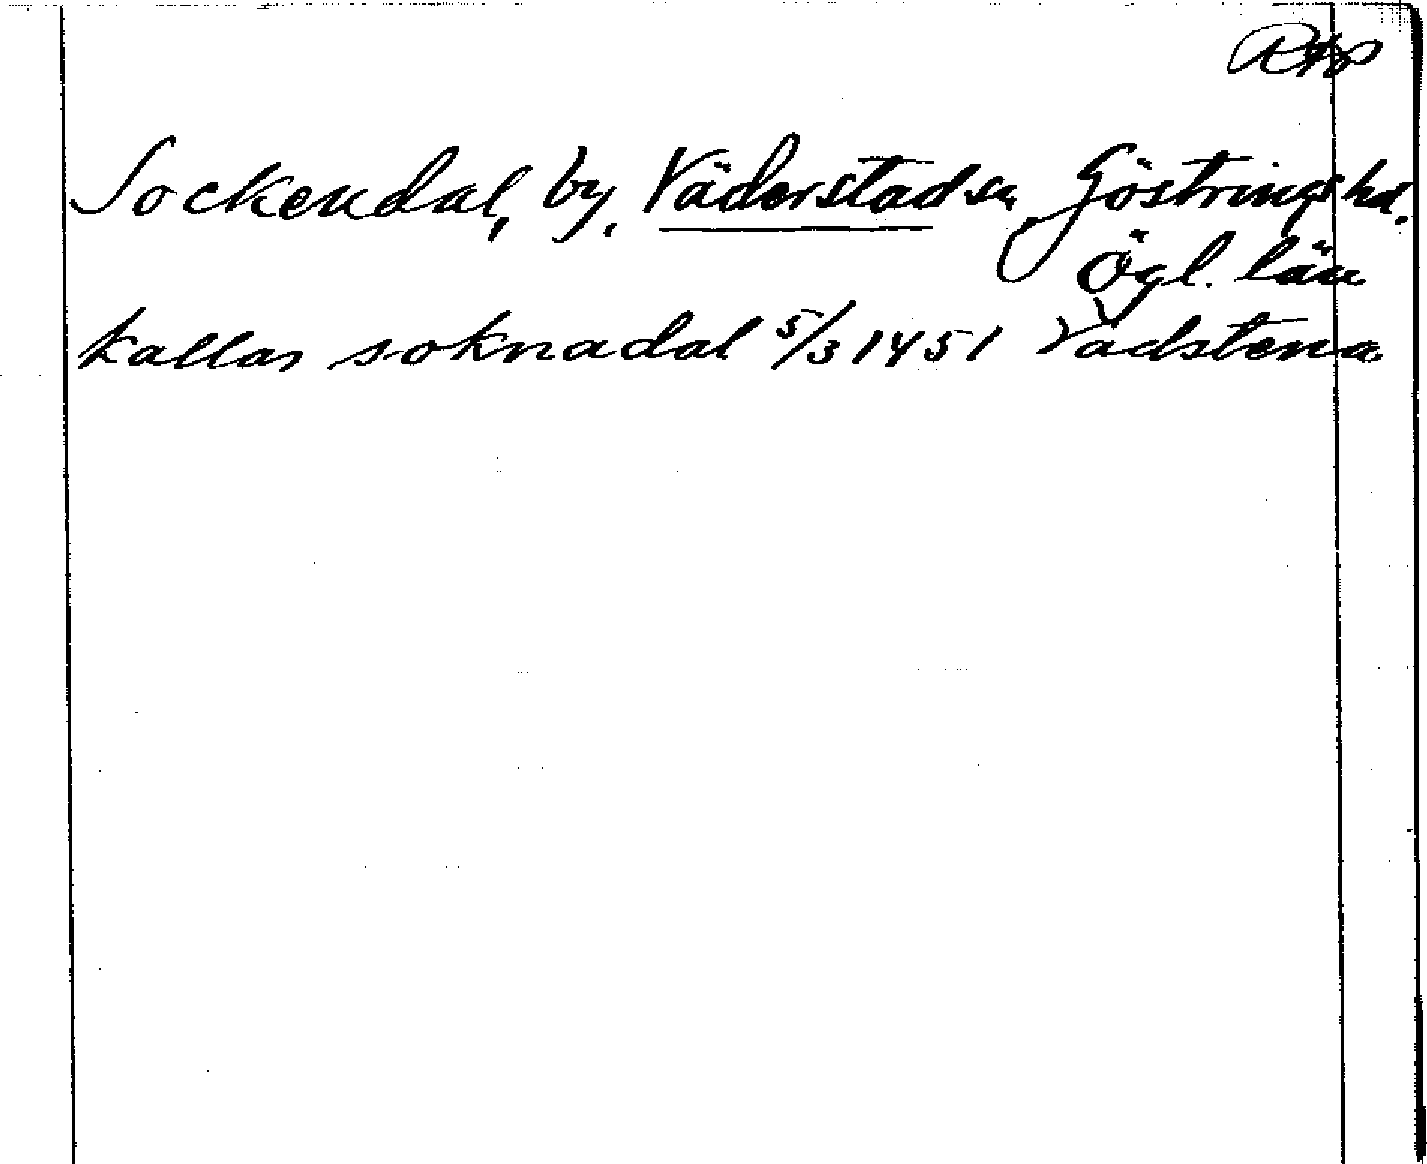 Sockendal, by, Väderstads sn, Göstrings hd.
Ögl. län
kallas soknadal 5/3 1451 Vadstena